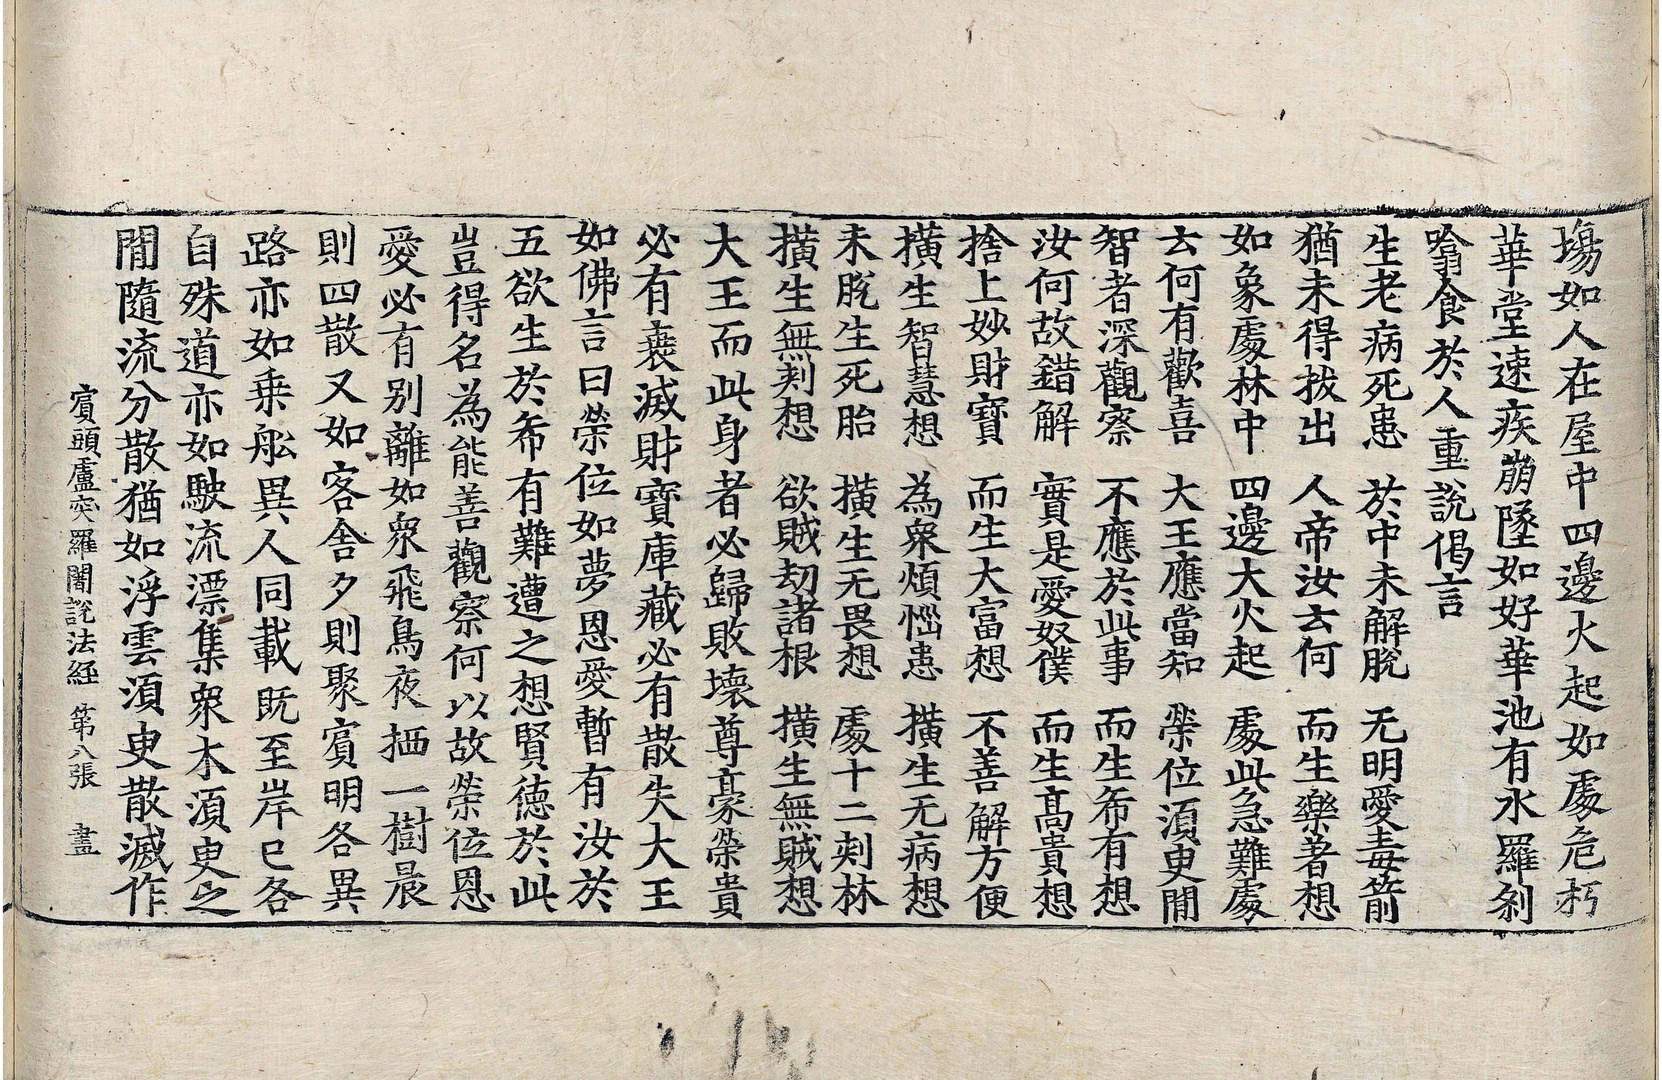 塲如人在屋中四邊火起如處危朽
華堂速疾崩墜如好華池有水羅剎
噏食於人重說偈言
生老病死患　於中未解脫　无明愛毒箭
猶未得拔出　人帝汝云何　而生樂著想
如象處林中　四邊大火起　處此急難處
云何有歡喜　大王應當知　榮位湏臾閒
智者深觀察　不應於此事　而生希有想
汝何故錯解　實是愛奴僕　而生髙貴想
捨上妙財寶　而生大富想　不善解方便
撗生智慧想　為衆煩惱患　撗生无病想
未脫生死胎　撗生无畏想　處十二刾林
撗生無刾想　欲賊劫諸根　撗生無賊想
大王而此身者必歸敗壞尊豪榮貴
必有衰滅財寶庫藏必有散失大王
如佛言曰榮位如夢恩愛暫有汝於
五欲生於希有難遭之想賢德於此
豈得名為能善觀察何以故榮位恩
愛必有別離如衆飛鳥夜栖一樹晨
則四散又如客舍夕則聚賓明各異
路亦如乗舩異人同載既至岸已各
自殊道亦如駛流漂集衆木湏臾之
閒隨流分散猶如浮雲湏臾散滅作
賓頭盧突羅闍說法經　第八張　盡